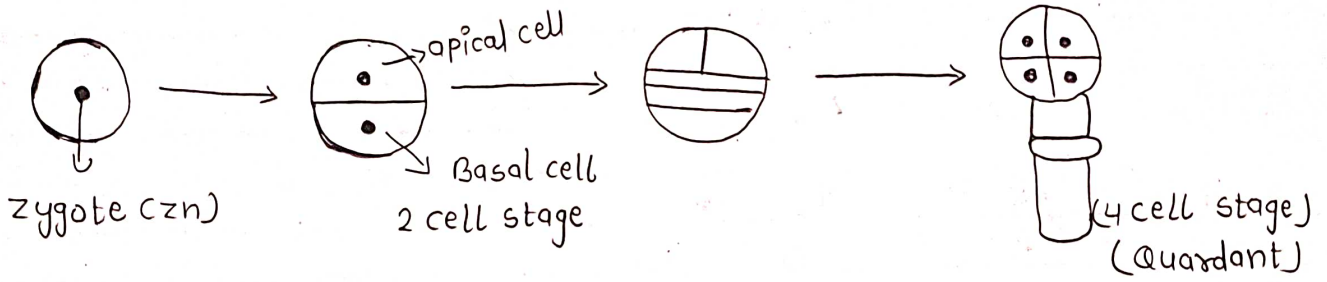 apical cell
Basal cell
zygote (zn)
2 cell stage
(4 cell stage)
(Quardant)